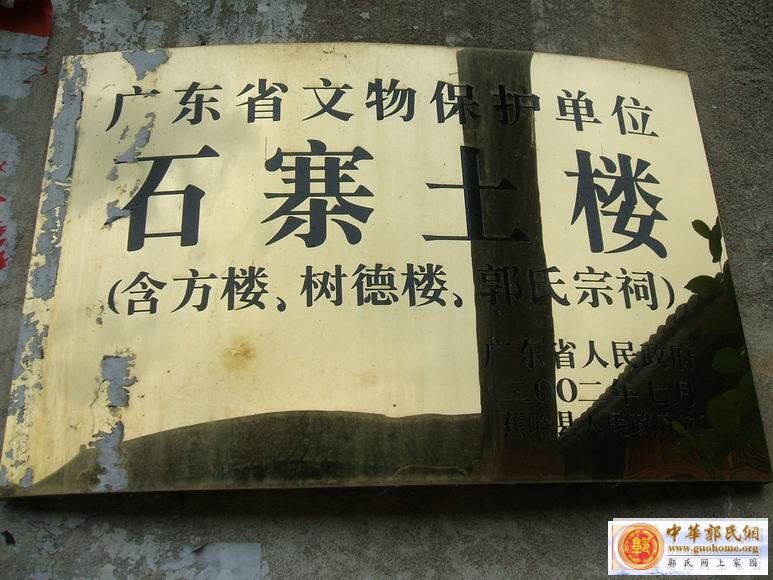 广东省文物保护单位
石寨土楼
(含方楼、树德楼、郭氏宗祠)
广东省人民政府
二〇〇二年七月
蕉岭县人民政府立
中華郭氏網
www.guohome.org
郭氏网上家园